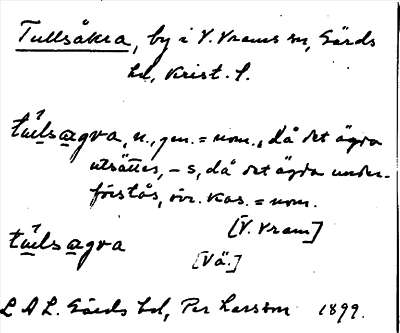 Tullsåkra, by i V. Vrams sn, Gärds
hd, Krist. l.
túlsagva, n., gen. = nom., då det ägda
utsättes, – s, då det ägda under-
förstås, övr. kas. = nom.
[V. Vram]
túlsagva
[Vä.]
L A L. Gärds hd, Per Larsson 1899.